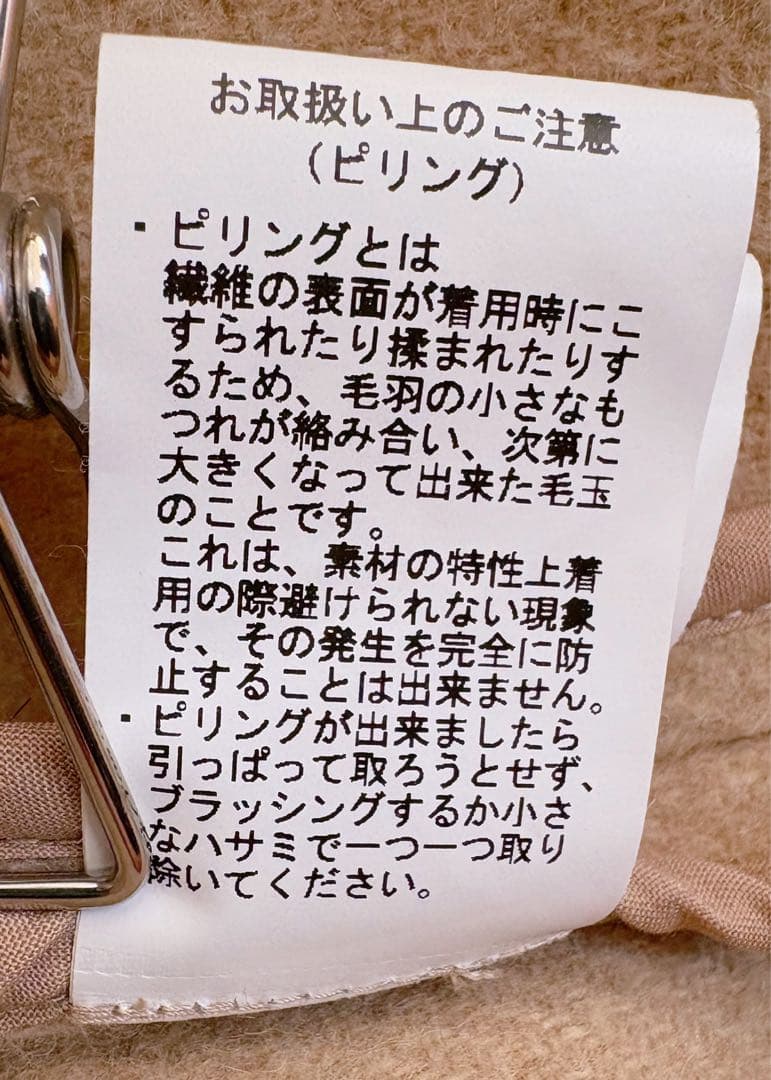 お取扱い上のご注意
(ピリング)
・ピリングとは
繊維の表面が着用時にこ
すられたり揉まれたりす
るため、毛羽の小さなも
つれが絡み合い、次第に
大きくなって出来た毛玉
のことです。
これは、素材の特性上着
用の際避けられない現象
で、その発生を完全に防
止することは出来ません。
・ピリングが出来ましたら
引っぱって取ろうとせず、
ブラッシングするか小さ
なハサミで一つ一つ取り
除いてください。